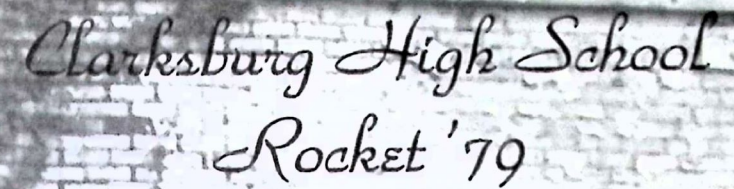 Clarksburg High School
Rocket '79